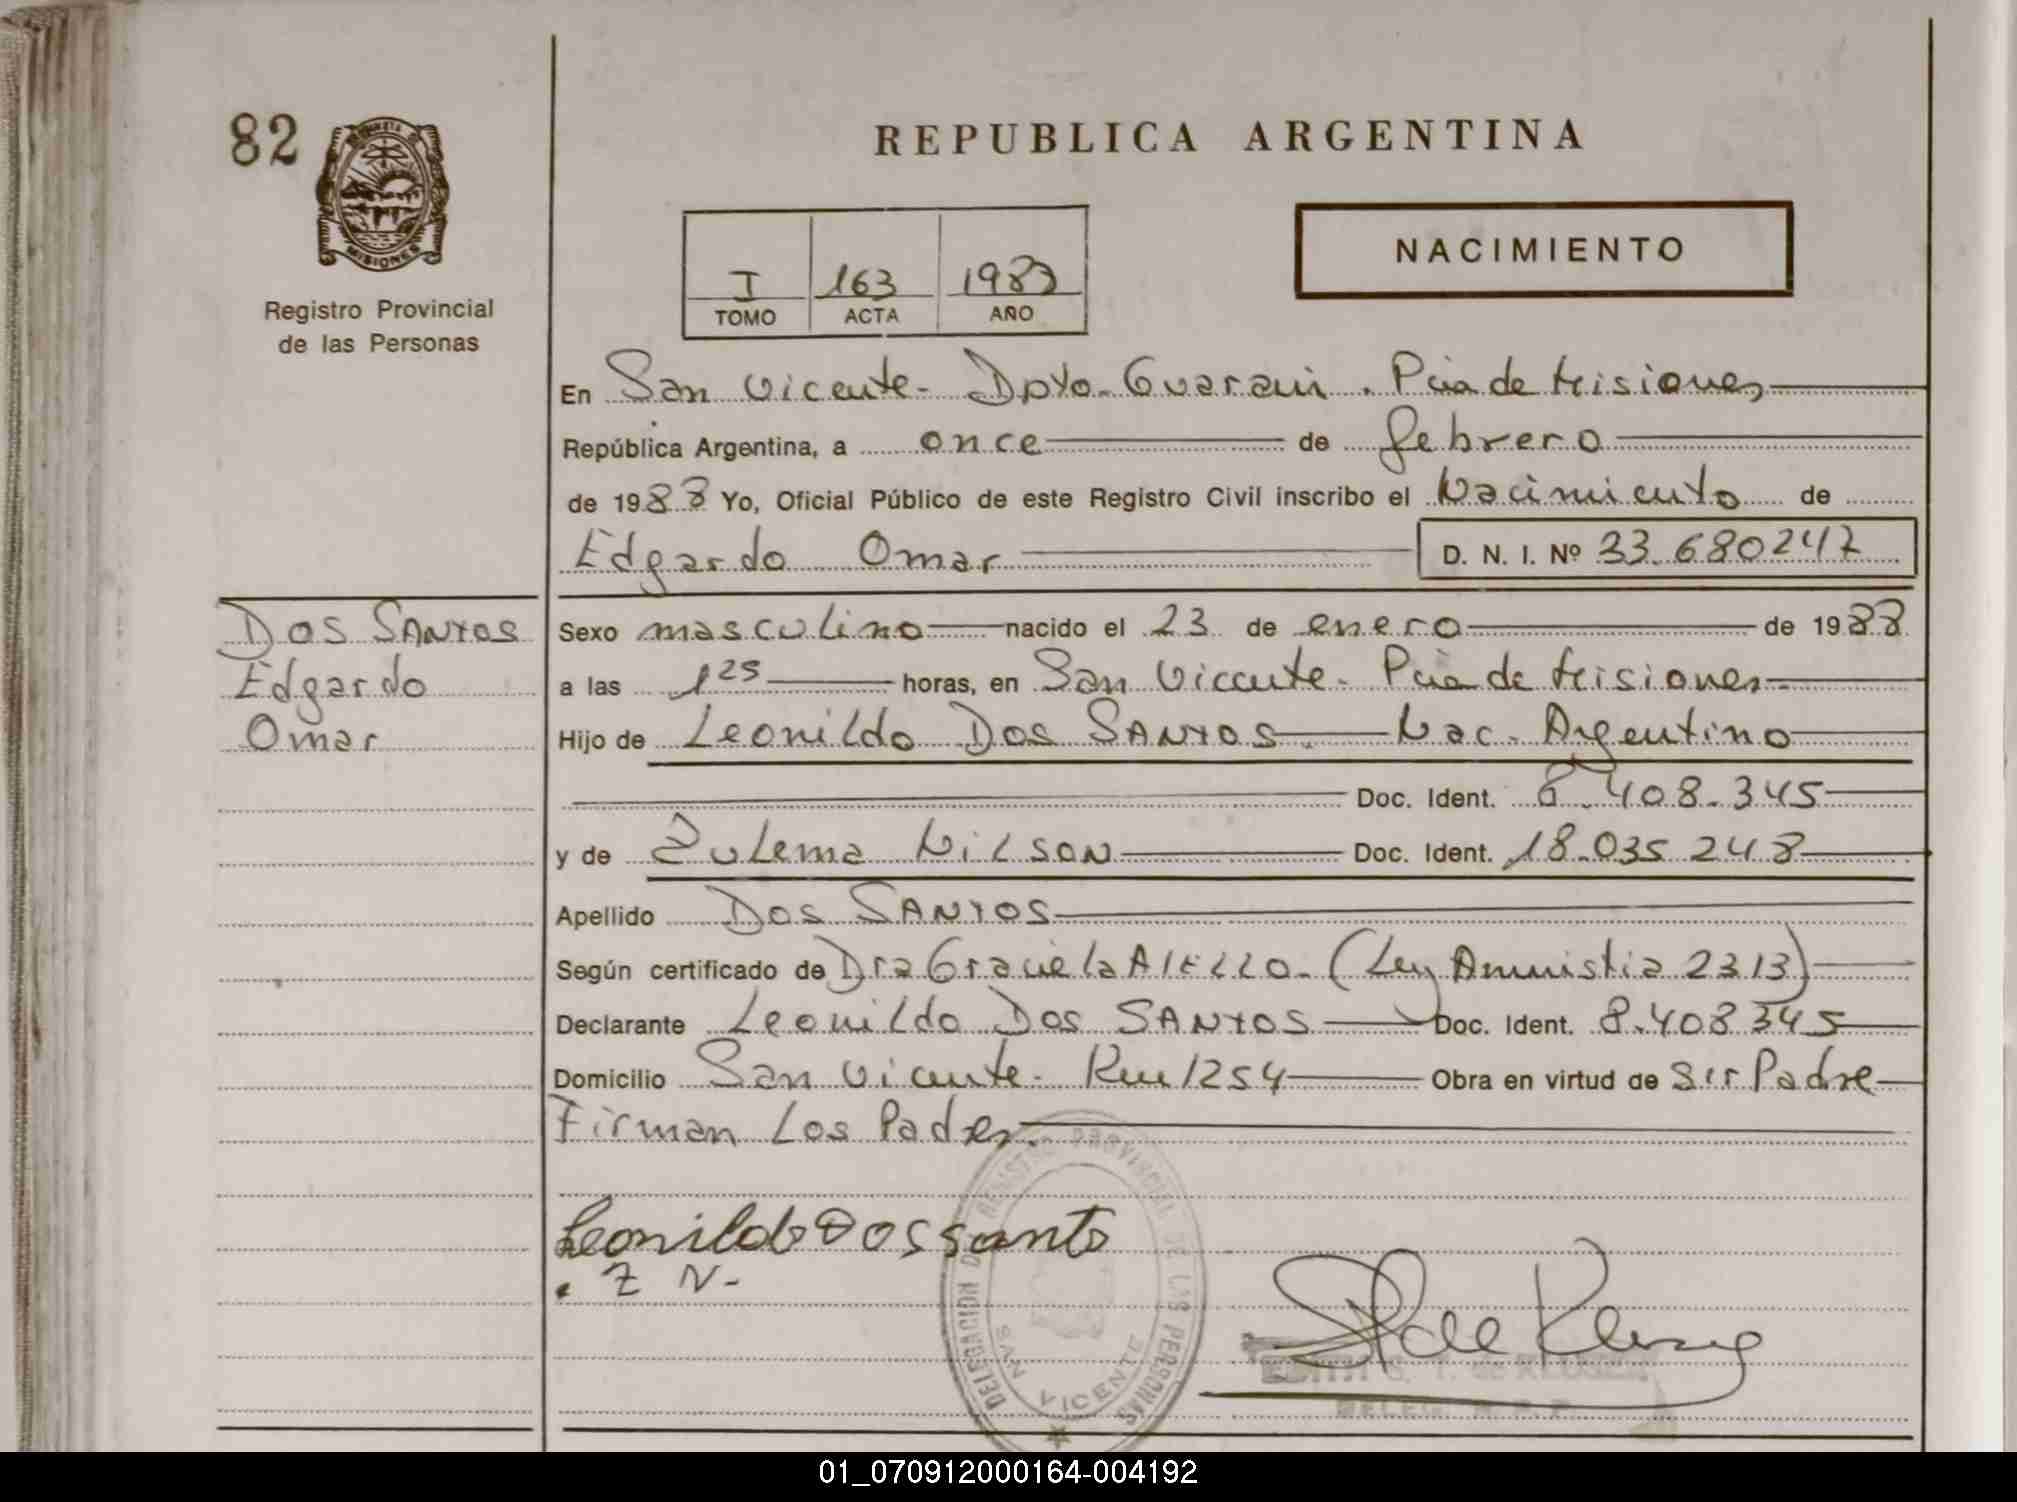 82
REPUBLICA ARGENTINA
MISIONES
Registro Provincial
de las Personas
I 163 1988
TOMO ACTA AÑO
NACIMIENTO
En San Vicente - Dpto. Guarani. Pcia de Misiones
República Argentina, a once de febrero
de 1988 Yo, Oficial Público de este Registro Civil inscribo el Nacimiento de
Edgardo Omar D. N. I. Nº 33.680247
Dos Santos
Edgardo
Omar
Sexo masculino nacido el 23 de enero de 1988
a las 1 25 horas, en San Vicente - Pcia de Misiones
Hijo de Leonildo Dos Santos Nac. Argentino
Doc. Ident. 8.408.345
y de Zulema Nilson Doc. Ident. 18.035.248
Apellido Dos Santos
Según certificado de Dra Graciela AIELLO - (Ley Amnistia 2313)
Declarante Leonildo Dos Santos Doc. Ident. 8.408.345
Domicilio San Vicente - Km 1254 Obra en virtud de ser Padre
Firman Los Padres.
Leonildo Dos santo
Z N-
DELEGACION DEL REGISTRO PROVINCIAL DE LAS PERSONAS
SAN VICENTE
01_070912000164-004192